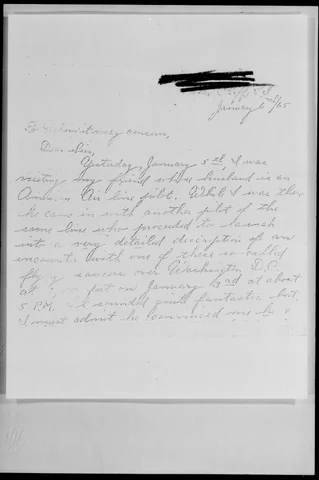 January 6/65
To Whom it may concern,
Dear Sir,
Yesterday, January 5th, I was
visiting my friend whose husband is an
American Air line pilot. While I was there
he came in with another pilot of the
same line who proceeded to launch
into a very detailed discription of an
encounter with one of these so-called
flying saucers over Washington D.C.
at put on January 3rd at about
5 P.M. It sounded quite fantastic but,
I must admit he convinced me he